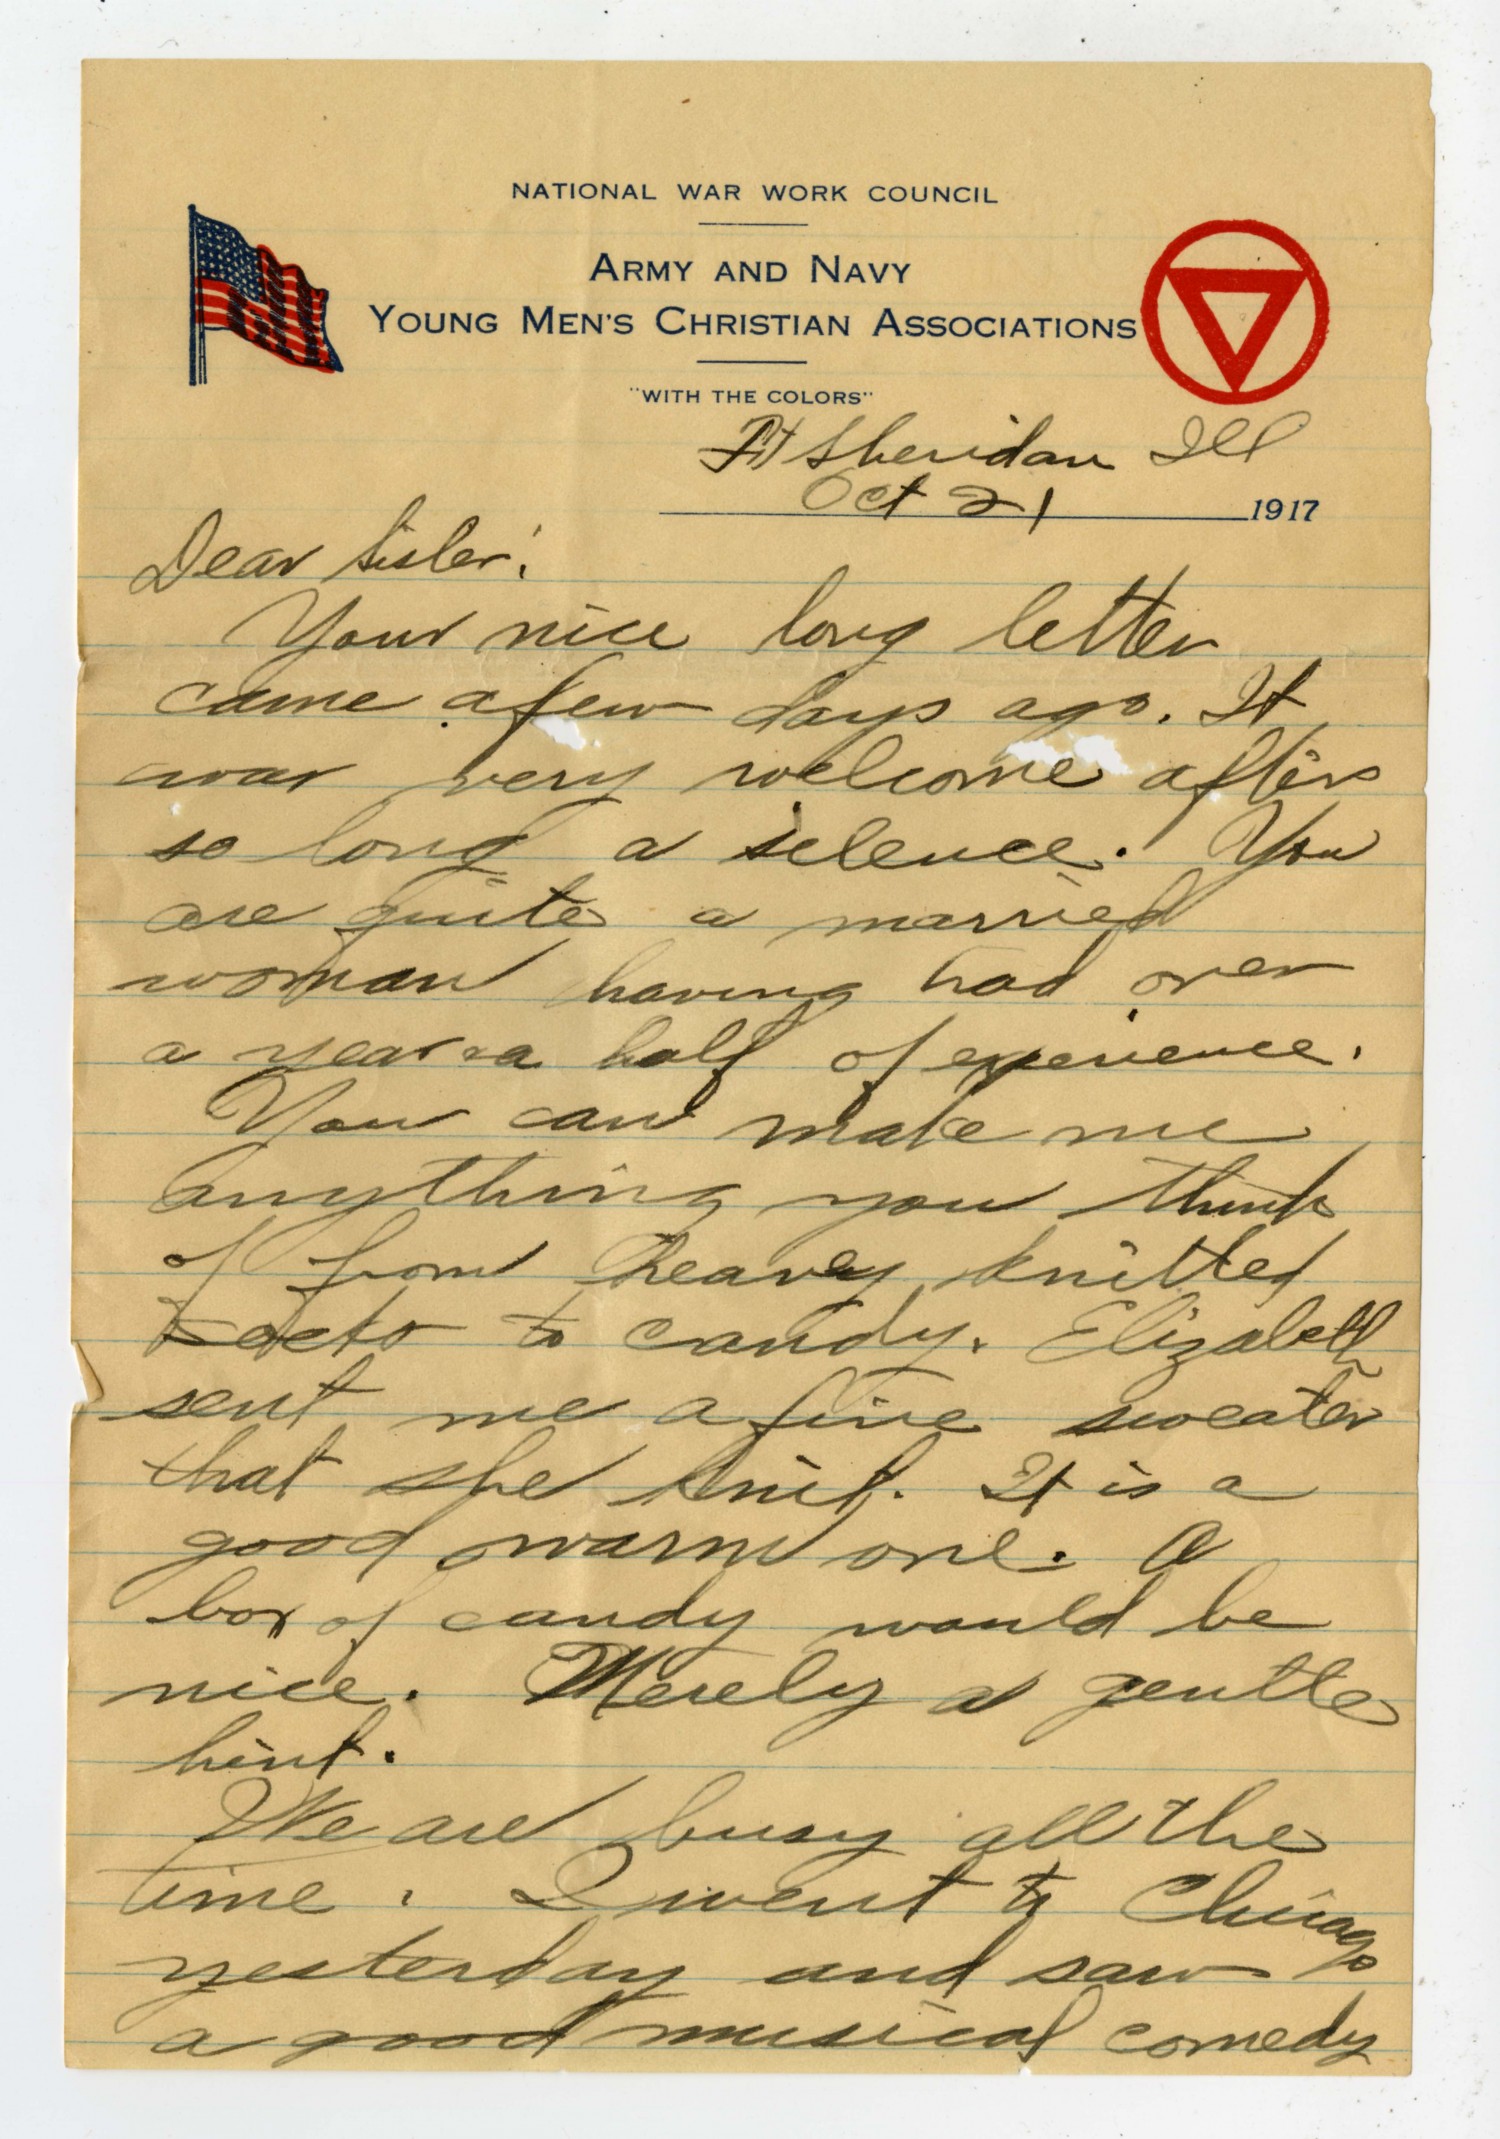 NATIONAL WAR WORK COUNCIL
ARMY AND NAVY
YOUNG MEN'S CHRISTIAN ASSOCIATIONS
"WITH THE COLORS"
Ft Sheridan Ill
Oct 21 1917
Dear Sister:
Your nice long letter
came a few days ago. It
was very welcome after
so long a silence. You
are quite a married
woman having had over
a year & a half of experience.
You can make me
anything you think
of from heavy knitted
socks to candy. Elizabeth
sent me a fine sweater
that she knit. It is a
good warm one. A
box of candy would be
nice. Merely a gentle
hint.
We are busy all the
time. I went to Chicago
yesterday and saw
a good musical comedy